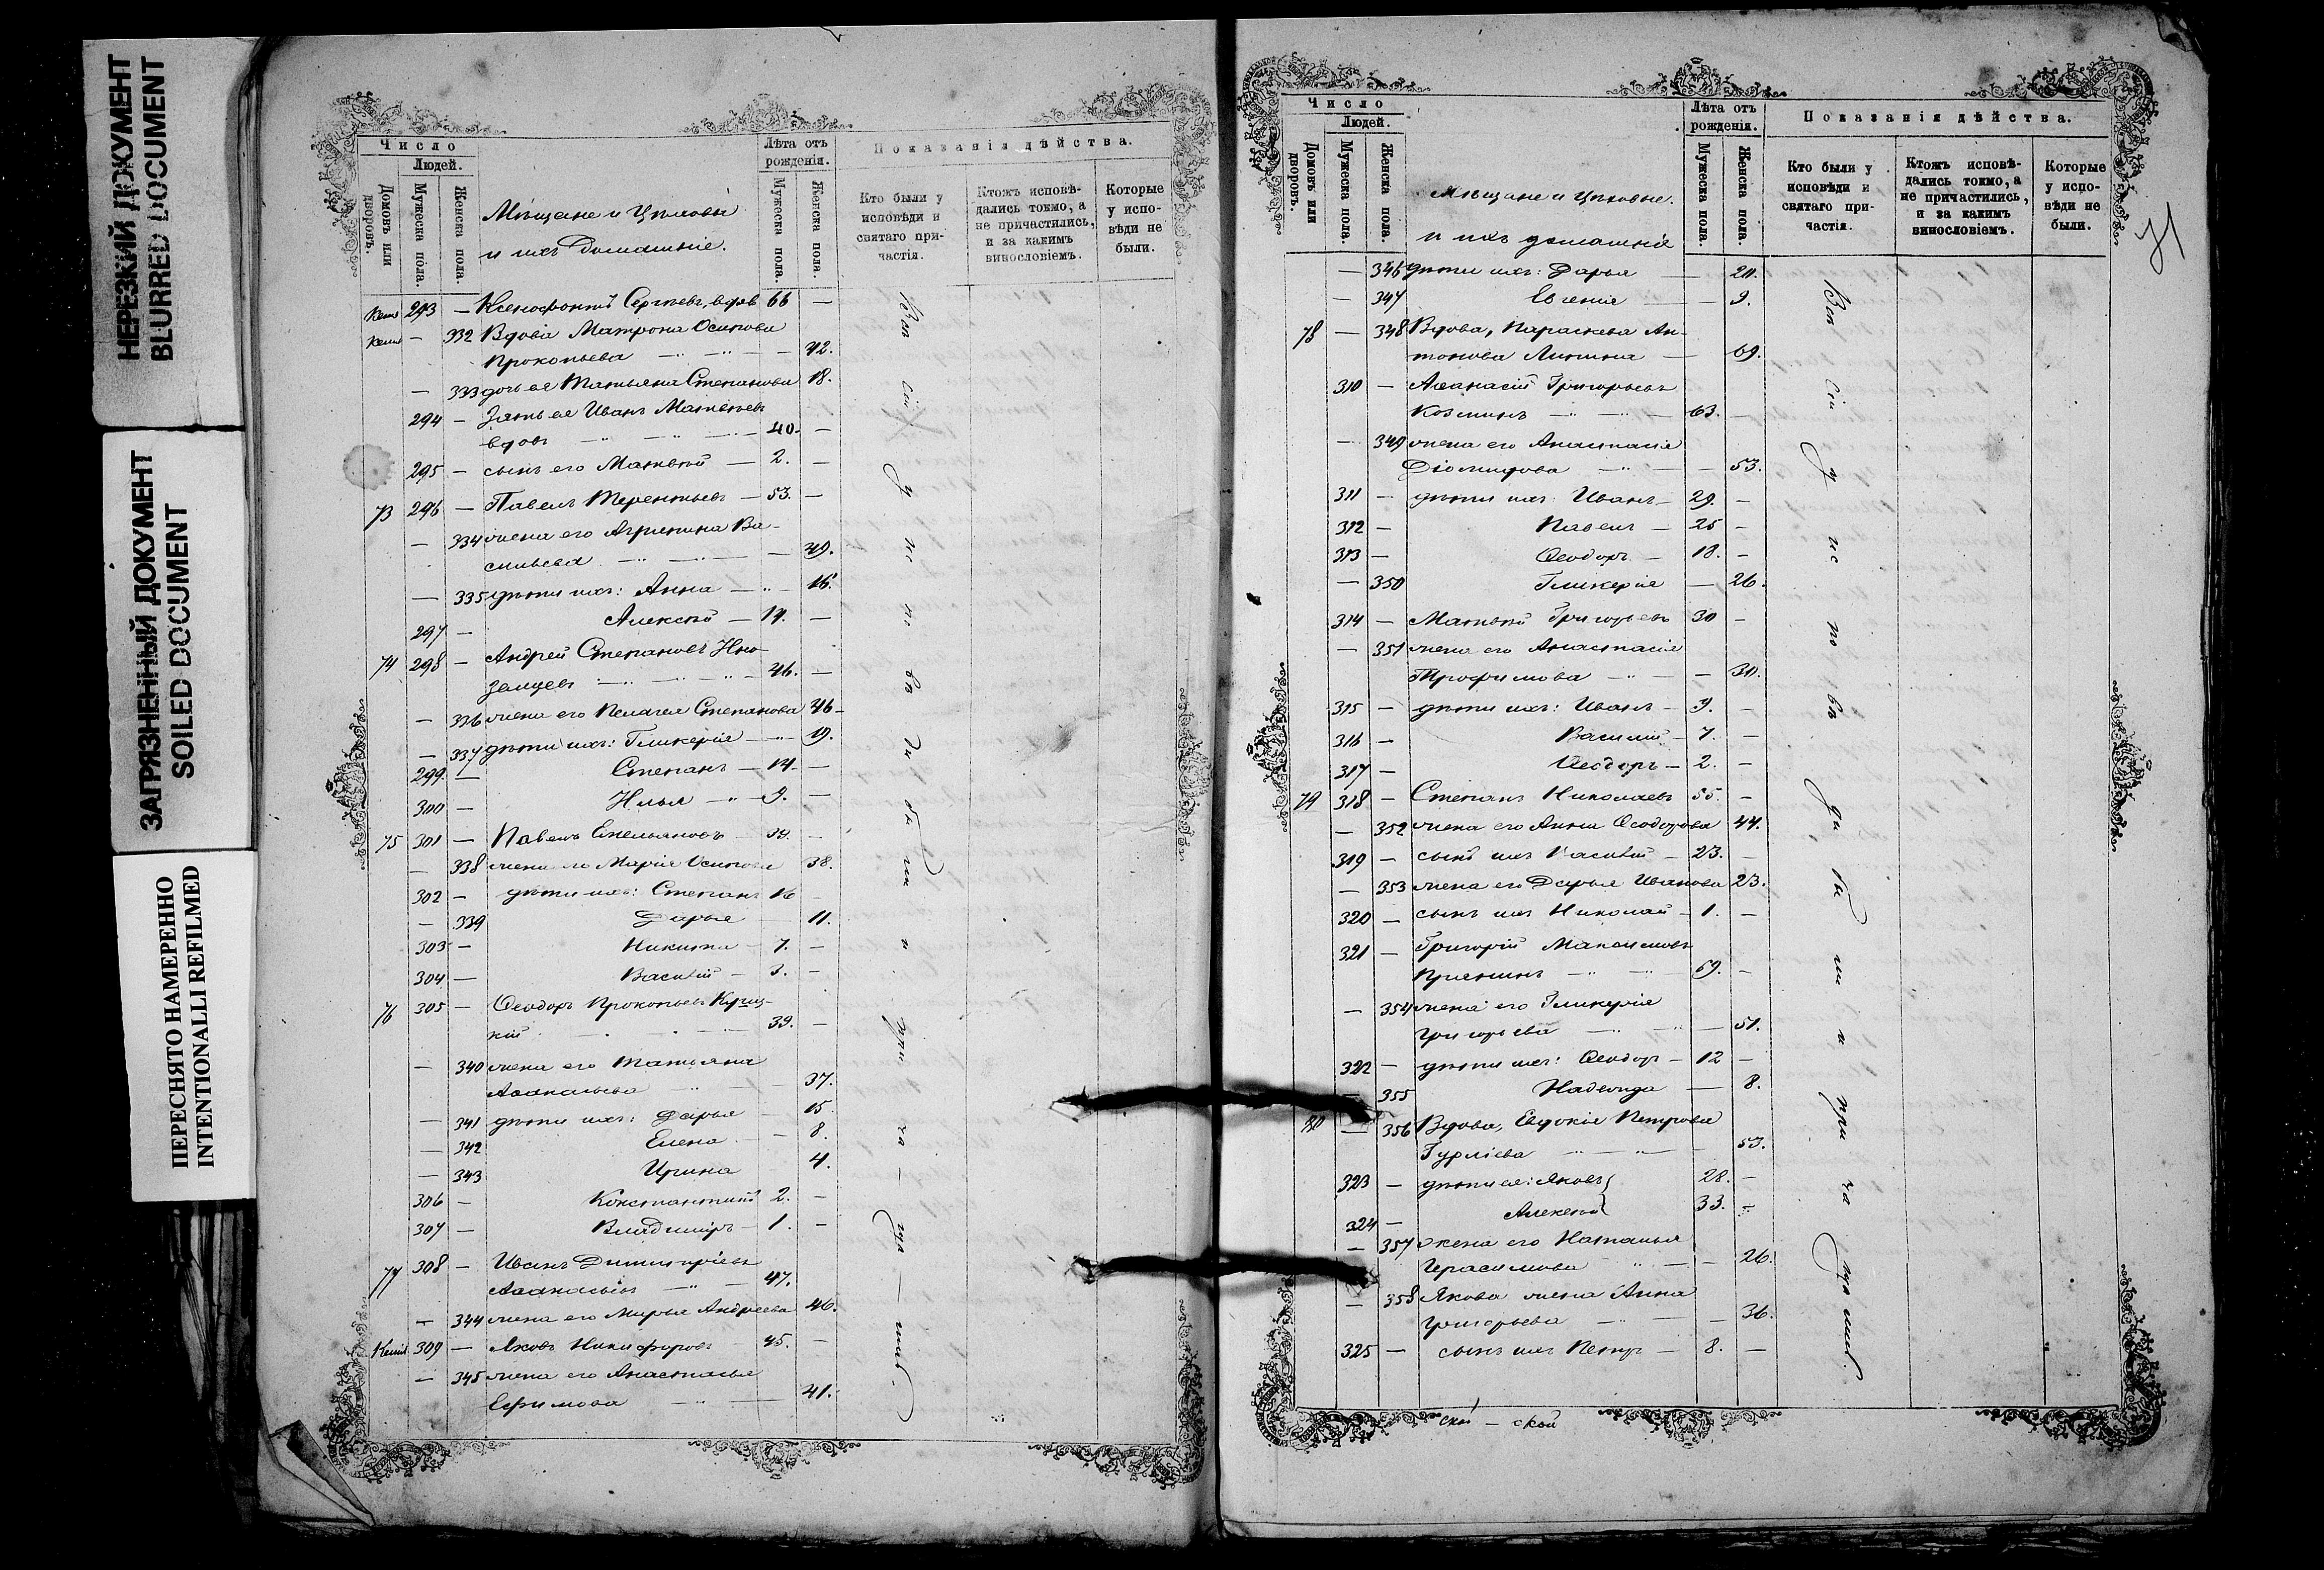 НЕРЕЗКИЙ ДОКУМЕНТ
BLURRED DOCUMENT
ЗАГРЯЗНЕННЫЙ ДОКУМЕНТ
SOILED DOCUMENT
ПЕРЕСНЯТО НАМЕРЕННО
INTENTIONALLI REFILMED
Число
Людей.
Домовъ или дворовъ.
Мужеска пола.
Женска пола.
Мѣщане и Цеховые
и ихъ Домашніе.
Лѣта отъ рожденія.
Мужеска пола.
Женска пола.
Показанія дѣйства.
Кто были у исповѣди и святаго причастія.
Ктожъ исповѣдались токмо, а не причастились, и за какимъ винословіемъ.
Которые у исповѣди не были.
293 — Ксенофонтъ Сергѣевъ, вдов 66 —
— 332 Вдова Матрона Осипова
Прокопьева — 42.
— 333 дочь ея Татьяна Степанова 18.
294 — Зять ея Иванъ Матвѣевъ
вдовъ — 40. —
295 — сынъ его Матвѣй — 2. —
73 296 — Павелъ Терентьевъ — 53. —
— 334 жена его Агрипина Ва-
сильева — 49.
— 335 дѣти ихъ: Анна — 16.
297 — Алексѣй — 14. —
74 298 — Андрей Степановъ
46. —
— 336 жена его Пелагея Степанова 46 —
— 337 дѣти ихъ: Гликерія — 19.
299. — Степанъ — 14. —
300 — Илья — 9. —
75 301 — Павелъ Емельяновъ —
— 338 жена его Марія Осипова 38.
302 — дѣти ихъ: Степанъ 16 —
— 339 Дарья — 11.
303 — Никита — 7. —
304 — Василій — 3. —
76 305 — Ѳеодоръ Прокопьевъ
кій — 39. —
— 340 жена его Татьяна
Аѳанасьева — 37.
— 341 дѣти ихъ: Дарья — 15.
— 342 Елена — 8.
— 343 Ирина 4.
306 — Константинъ 2. —
307 — Владиміръ — 1. —
77 308 — Иванъ Димитріевъ
Аѳанасьевъ — 47.
— 344 жена его Марья Андреева 46.
309 — Яковъ Никифоровъ — 45. —
— 345 жена его Анастасья
Ефимова — 41.
Всѣ сіи у исповѣди были и причащались.
Число
Людей.
Домовъ или дворовъ.
Мужеска пола.
Женска пола.
Мѣщане и Цеховые.
и ихъ домашніе
Лѣта отъ рожденія.
Мужеска пола.
Женска пола.
Показанія дѣйства.
Кто были у исповѣди и святаго причастія.
Ктожъ исповѣдались токмо, а не причастились, и за какимъ винословіемъ.
Которые у исповѣди не были.
— 346 дѣти ихъ: Дарья — 20.
— 347 Евгенія — 9.
78 — 348 Вдова, Параскева Ан-
тонова — 69.
310 — Аѳанасій Григорьевъ
Козминъ — 63. —
— 349 жена его Анастасія
Діомидова — 53.
311 — дѣти ихъ: Иванъ — 29. —
312 — Павелъ — 25 —
313 — Ѳеодоръ — 18. —
— 350 Гликерія — 26.
314 — Матвѣй Григорьевъ 30 —
— 351 жена его Анастасія
Трофимова — 30.
315 — дѣти ихъ: Иванъ — 9. —
316 — Василій — 7. —
317 — Ѳеодоръ — 2. —
79 318 — Степанъ Николаевъ 55. —
— 352 жена его Анна Ѳеодорова 44.
319 — сынъ ихъ Василій — 23. —
— 353 жена его Дарья Иванова 23.
320 — сынъ ихъ Николай — 1. —
321 — Григорій Максимовъ
Прянинъ — 59. —
— 354 жена его Гликерія
Григорьева — 51.
322 — дѣти ихъ: Ѳеодоръ — 12 —
— 355 Надежда — 8.
80 — 356 Вдова, Евдокія Петрова
Гурліева — 53.
323 — дѣти ея: Яковъ 28. —
324 — Алексѣй 33. —
— 357 жена его Наталья
Герасимова — 26.
— 358 Якова жена Анна
Григорьева — 36.
325 — сынъ ихъ Петръ — 8. —
Всѣ сіи у исповѣди были и причащались.